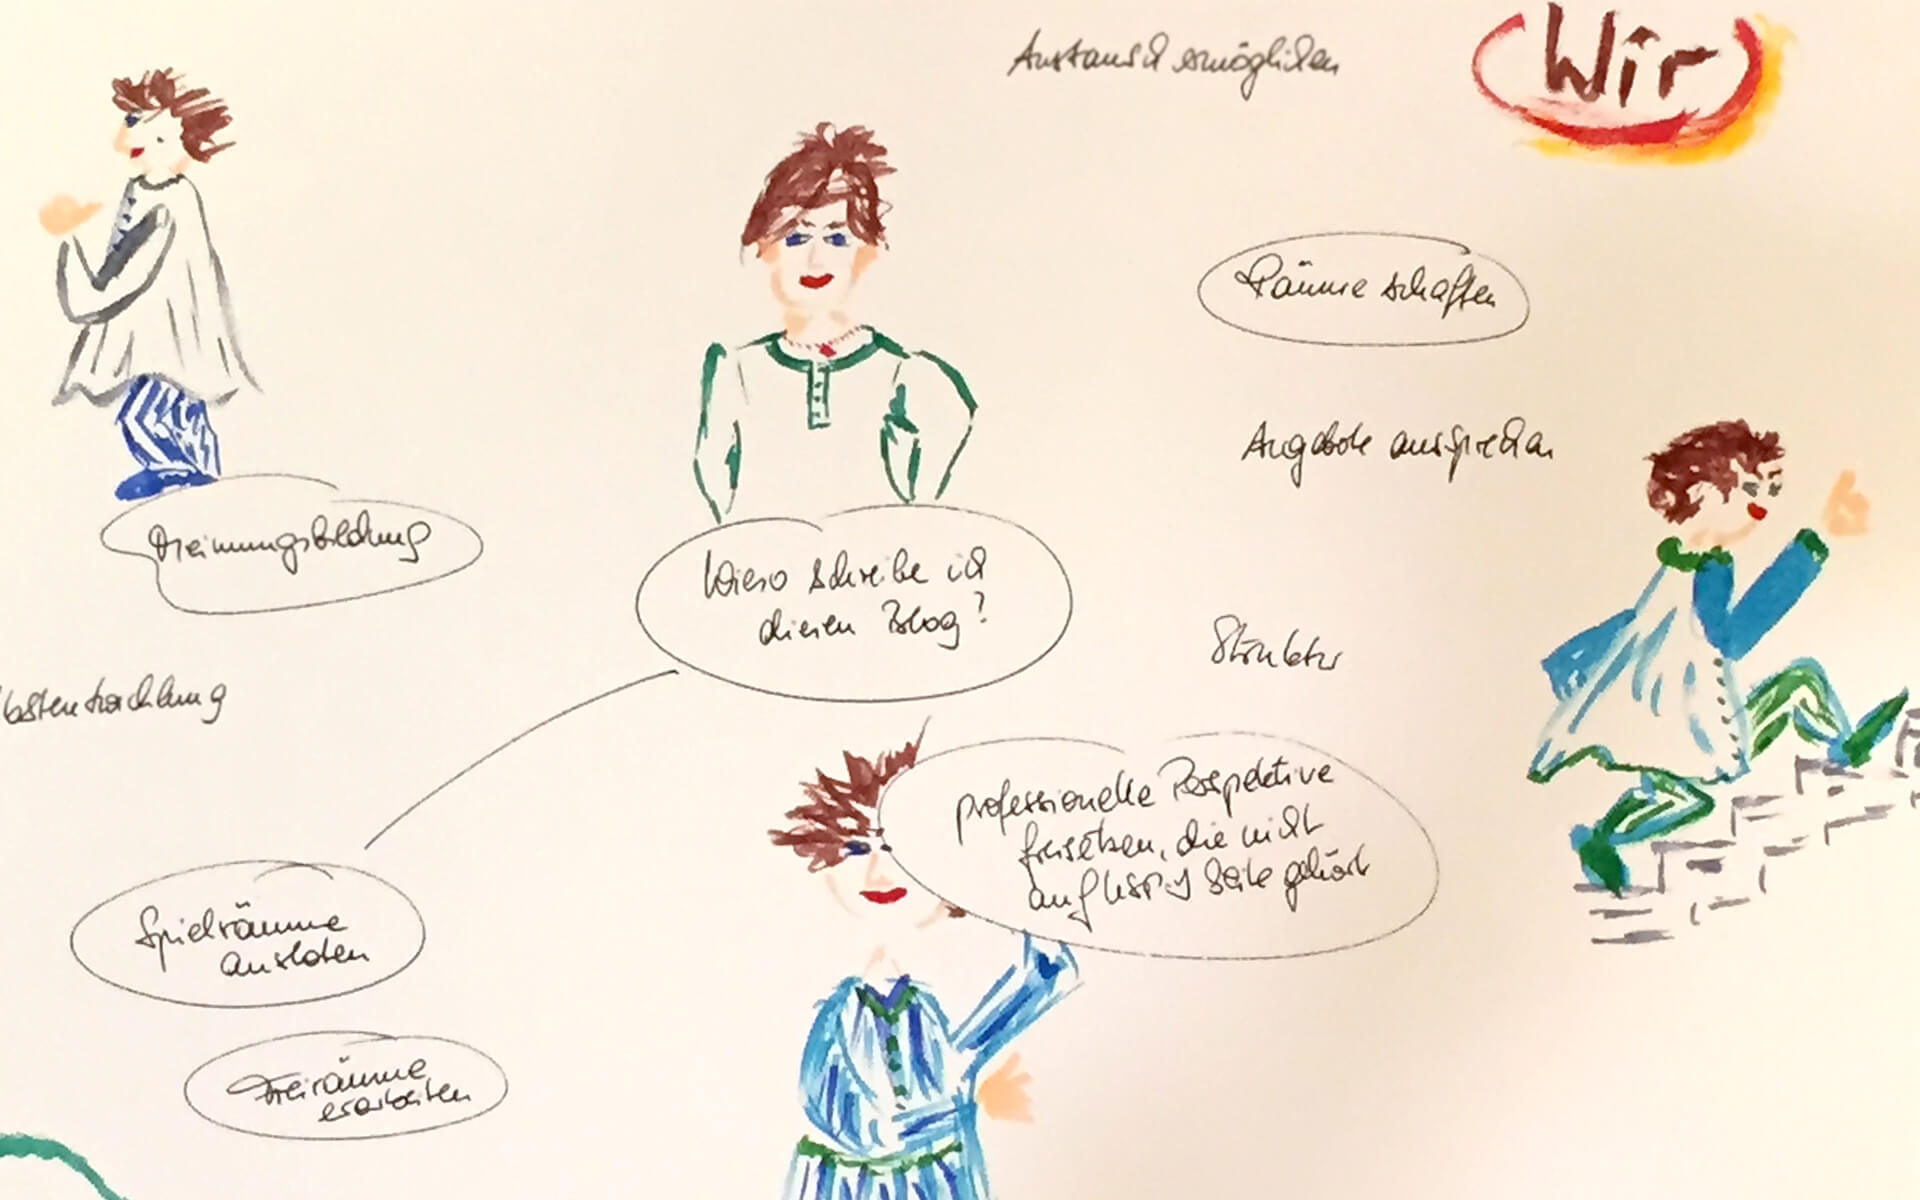 Austausch ermöglichen
Wir
Räume schaffen
Angebote aussprechen
Meinungsbildung
Wieso schreibe ich
diesen Blog?
Struktur
professionelle Perspektive
freisetzen, die nicht
auf Seite gehört
Spielräume
ausloten
Freiräume
erarbeiten